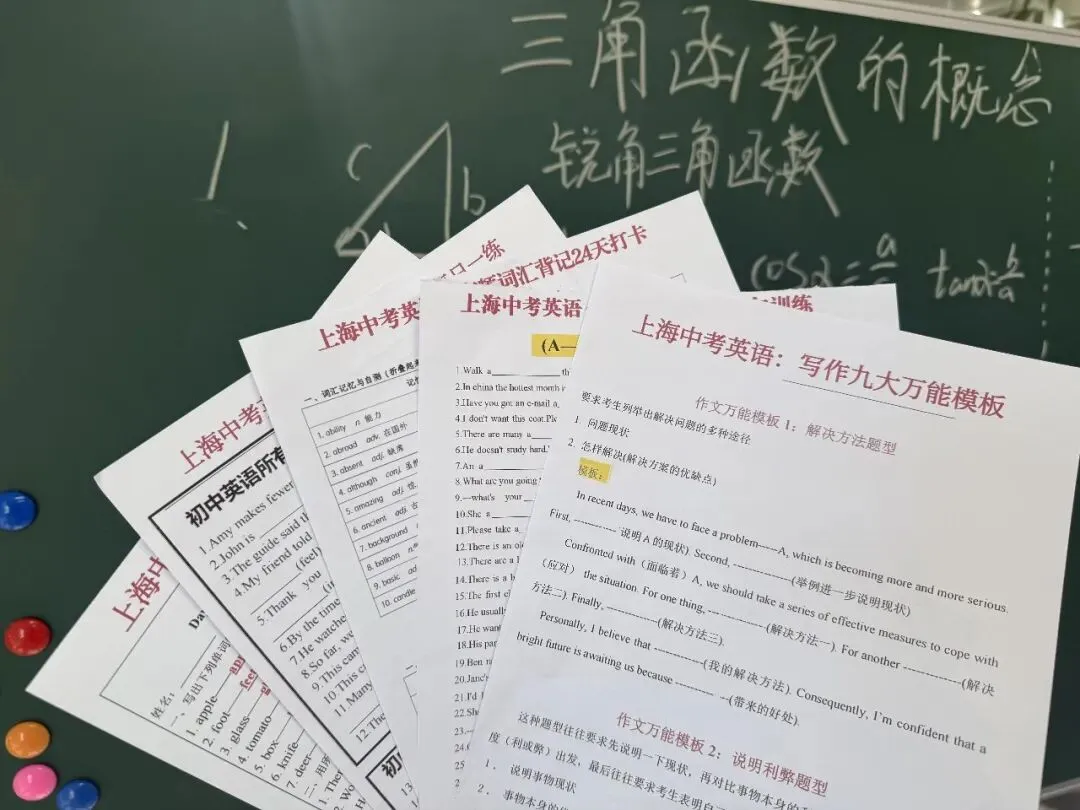 三角函数的概念
1、
锐角三角函数
c
b
a
cosα=a/c tanα=b/a
日一练
词汇背记24天打卡
训练
上海中考英语：写作九大万能模板
作文万能模板 1：解决方法题型
要求考生列举出解决问题的多种途径
1 问题现状
2. 怎样解决(解决方案的优缺点)
模板：
In recent days, we have to face a problem-----A, which is becoming more and more serious.
First, ------------ 说明 A 的现状). Second, ---------------(举例进一步说明现状)
Confronted with（面临着）A, we should take a series of effective measures to cope with
（应对） the situation. For one thing, ---------------(解决方法一). For another -------------(解决
方法二). Finally, --------------(解决方法三).
Personally, I believe that -------------(我的解决方法). Consequently, I'm confident that a
bright future is awaiting us because ----------- --(带来的好处).
作文万能模板 2：说明利弊题型
这种题型往往要求先说明一下现状，再对比事物本身的
度（利或弊）出发，最后往往要求考生表明自
1． 说明事物现状
2． 事物本身的
上海中考英语
(A—
1 Walk a th
2.In china the hottest month
3.Have you got an e-mail a
4.I don't want this coat.Ple
5.There are many a
6.He doesn't study hard.
7.An a
8.What are you going
9.---what's your
10.She a
11.Please take a
12.There is an ol
13.There are a
14.There is a
15.The first
16.He usuall
17.He wan
18.His pa
19.Ben
20.Jane's
21.I'd
22.She
23.
24.
25
上海中考英
一、词汇记忆与自测（折叠起来
1. ability n 能力
2. abroad adv. 在国外
3. absent adj. 缺席
4. although conj. 虽然
5. amazing adj.
6. ancient adj. 古
7. background
8. balloon n.
9. basic adj.
10. candle
上海中考
初中英语所有
1.Amy makes fewer
2.John is
3.The guide said th
4.My friend told
(feel)
5.Thank you
6.By the time
7.He watche
8.So far, we
9.This cam
10.This c
11.Many
12.The
初
13
上海中
Da
姓名：
一、写出下列单词
1. apple
2. foot
3. glass
4. tomato
5. box
6. knife
7. deer
二、用所
1. Ther
2. Wo